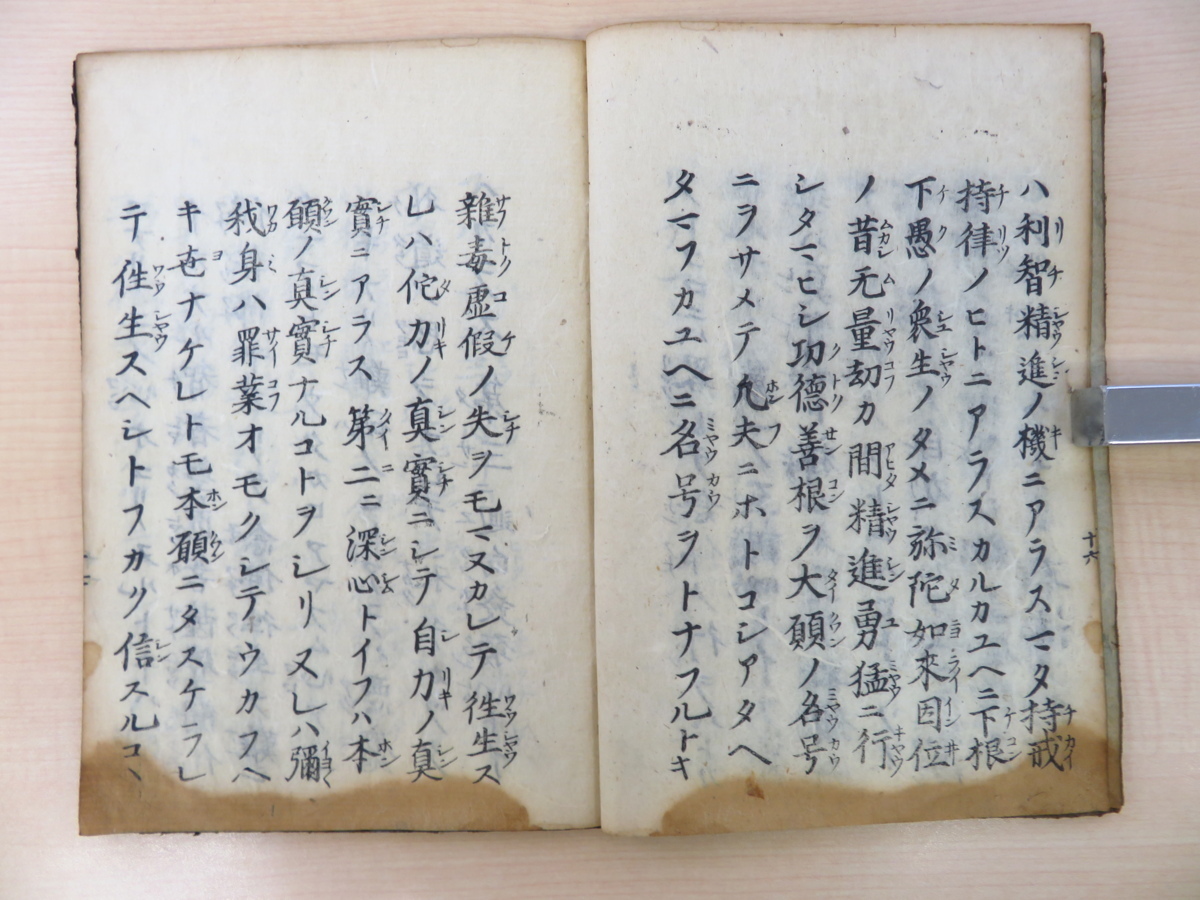 ハ利智精進ノ機ニアラスマタ持戒
持律ノヒトニアラスカルカユヘニ下根
下愚ノ衆生ノタメニ弥陀如来因位
ノ昔无量劫カ間精進勇猛ニ行
シタマヒシ功德善根ヲ大願ノ名号
ニヲサメテ凡夫ニホトコシアタヘ
タマフカユヘニ名号ヲトナフルトキ
十六
雜毒虚假ノ失ヲモマヌカレテ往生ス
レハ佗力ノ真實ニシテ自力ノ真
實ニアラス第二ニ深心トイフハ本
願ノ真實ナルコトヲシリヌレハ彌
我身ハ罪業オモクシテウカフヘ
キ世ナケレトモ本願ニタスケラレ
テ往生スヘシトフカク信スルコヽ